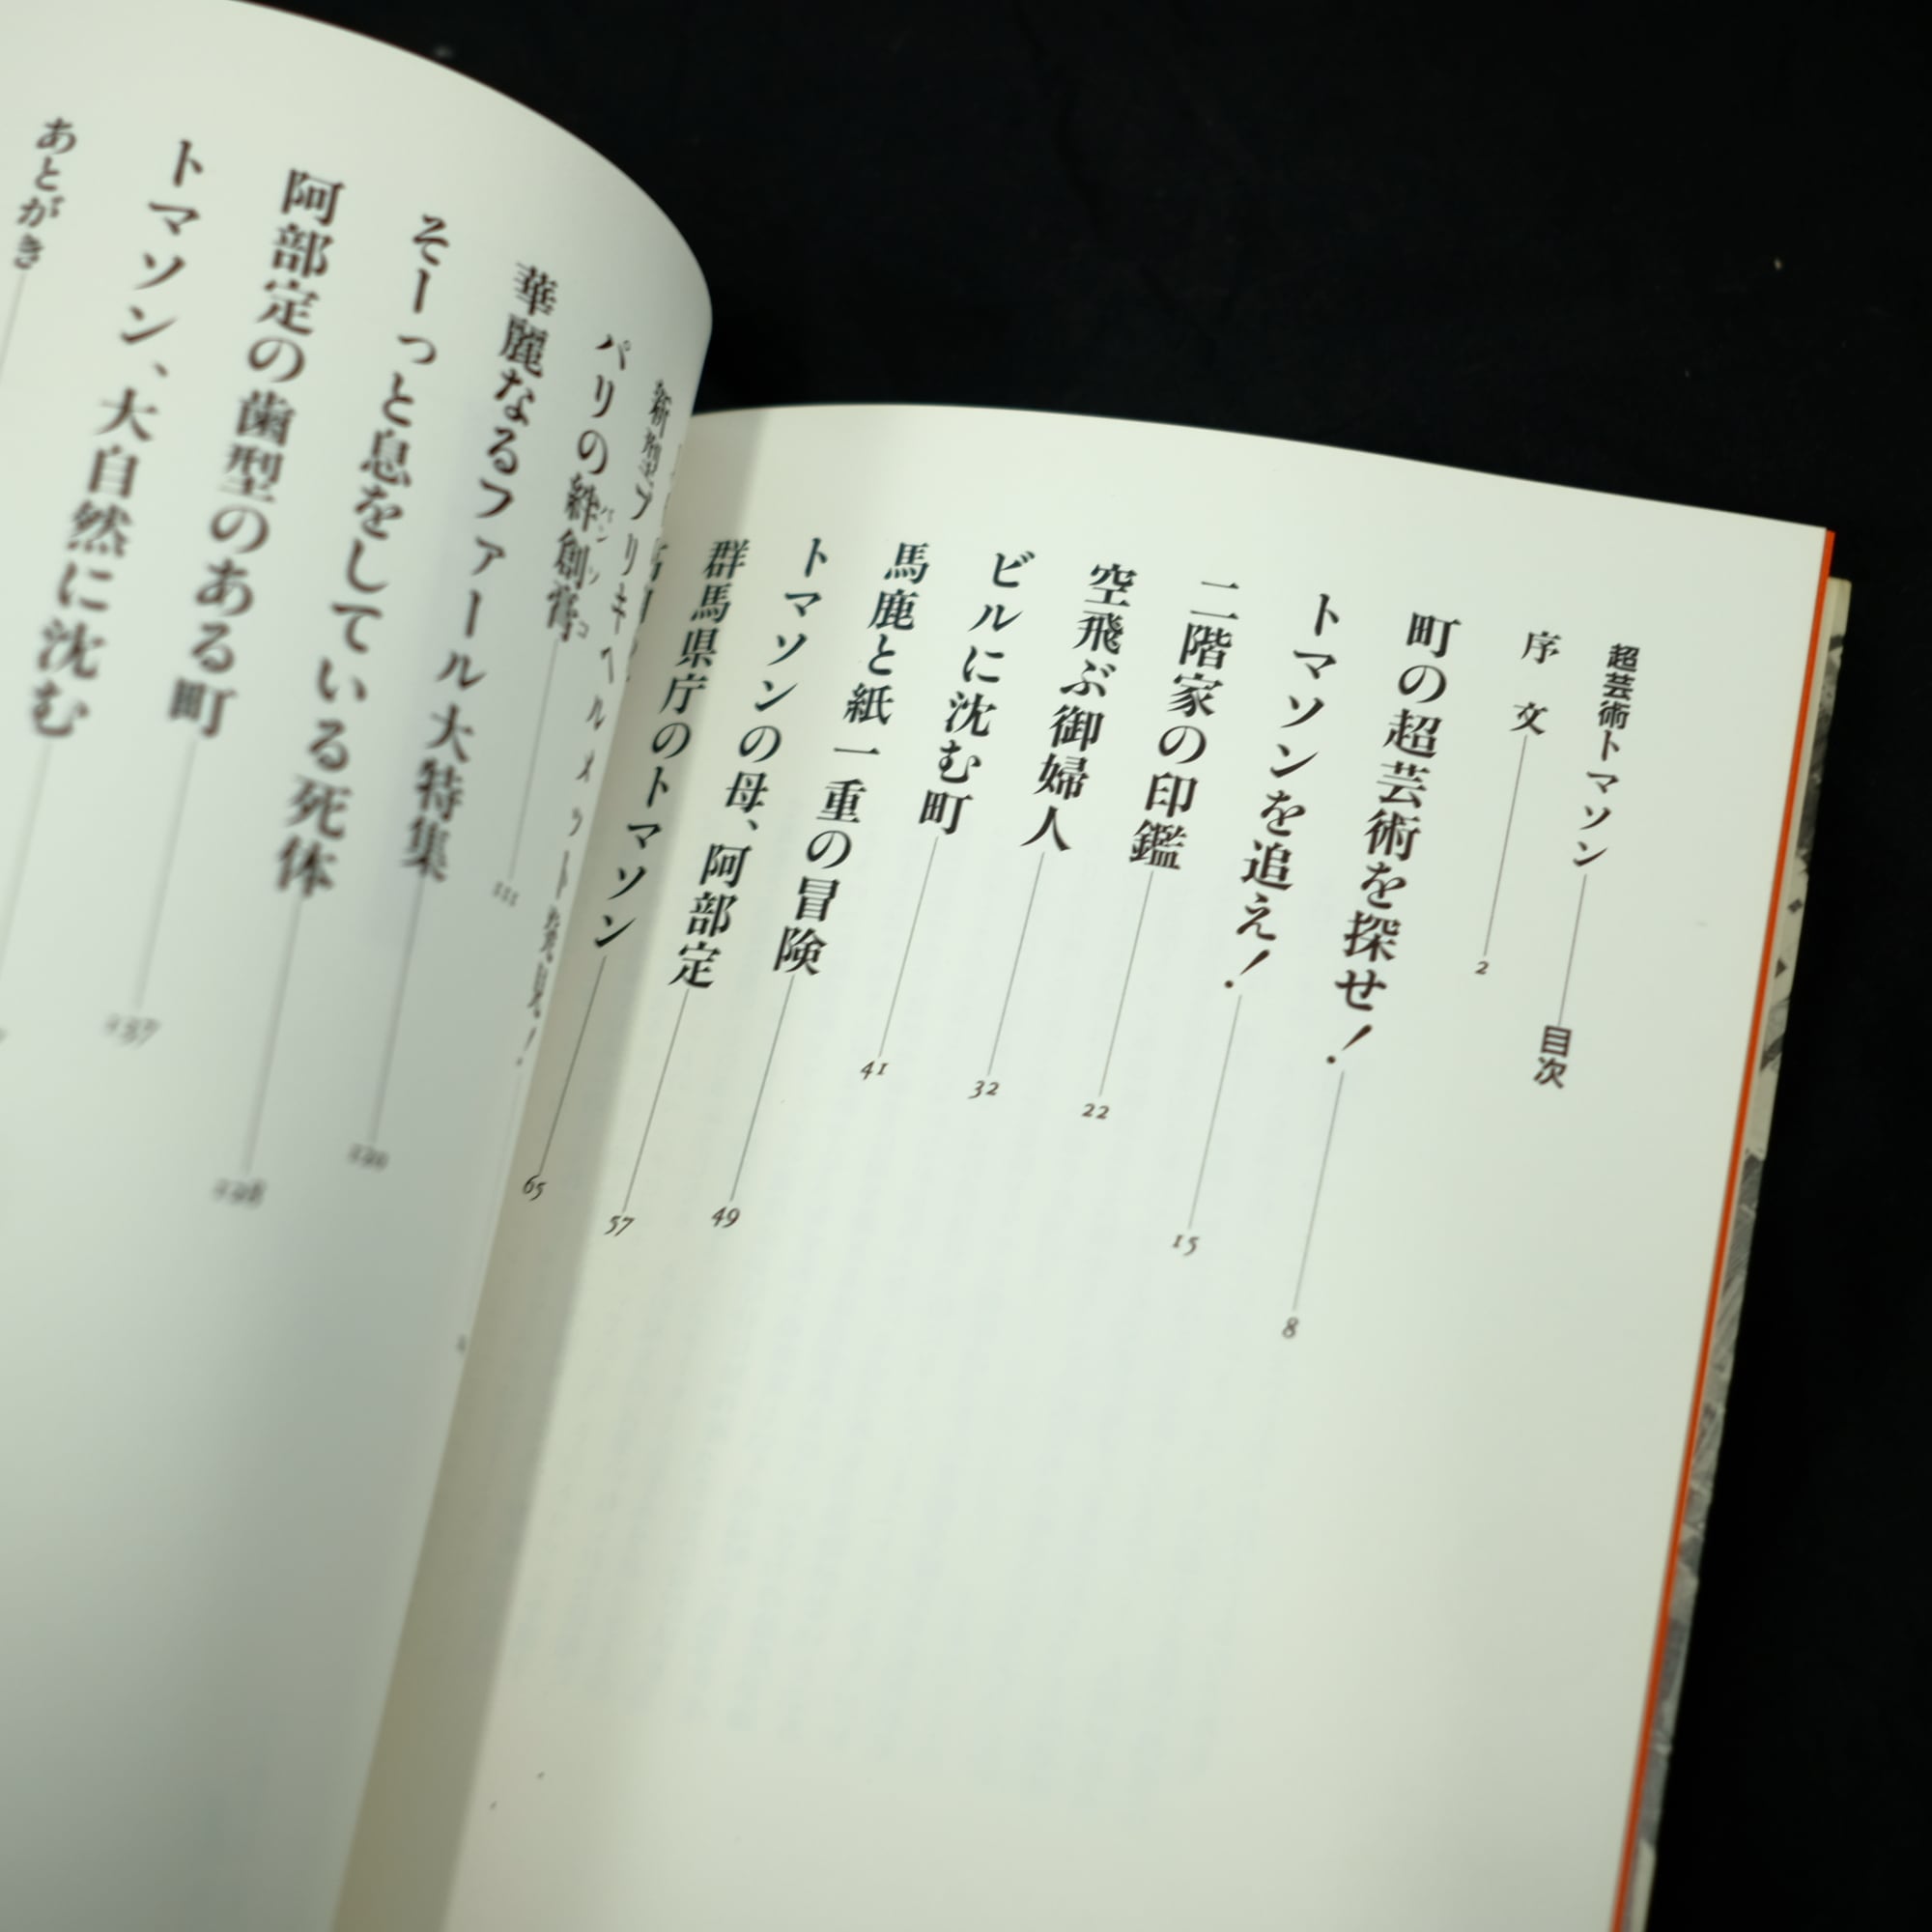 超芸術トマソン 目次
序文 2
町の超芸術を探せ! 8
トマソンを追え! 15
二階家の印鑑 22
空飛ぶ御婦人 32
ビルに沈む町 41
馬鹿と紙一重の冒険 49
トマソンの母、阿部定 57
群馬県庁のトマソン 65
パリの絆創膏 111
華麗なるファール大特集
そーっと息をしている死体
阿部定の歯型のある町
トマソン、大自然に沈む
あとがき